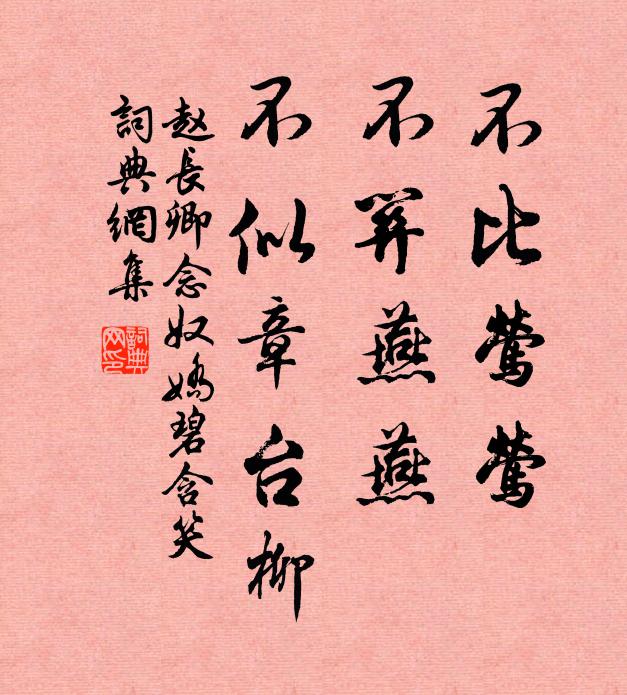 不比鶯鶯
不筭燕燕
不似章台柳
赵長卿念奴嬌碧含笑
詞典網集
詞典
网印